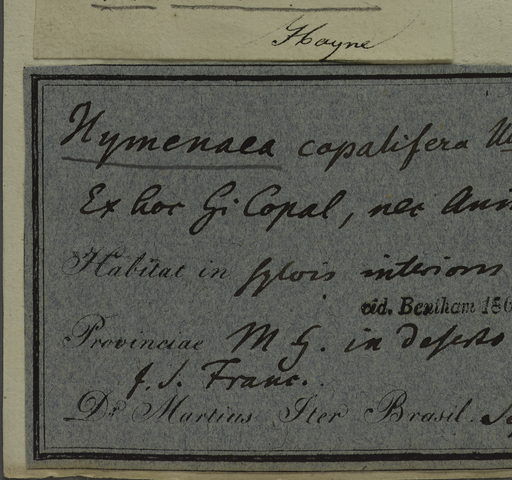 Hayne
Hymenaea copalifera
Ex hoc Gi Copal, nec
Habitat in sylvis interioris
vid. Bentham 186
Provinciae M G. in deserto
f. S. Franc.
Dr. Martius Iter Brasil.